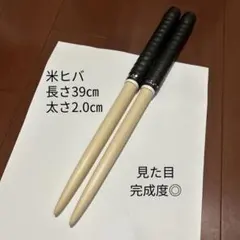 米ヒバ
長さ39㎝
太さ2.0㎝
見た目
完成度◎